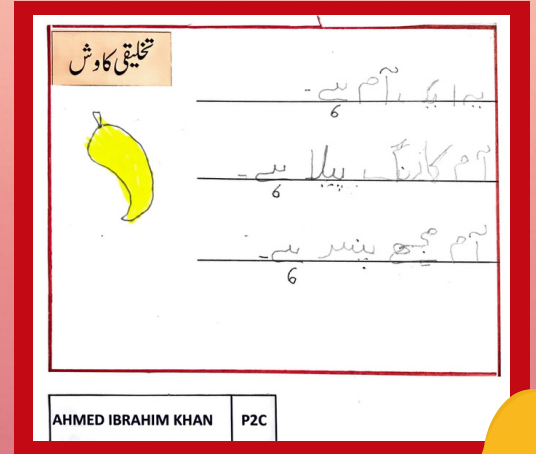 تخلیقی کاوش
یہ ایک آم ہے۔
آم کا رنگ پیلا ہے۔
آم مجھے پسند ہے۔
AHMED IBRAHIM KHAN P2C